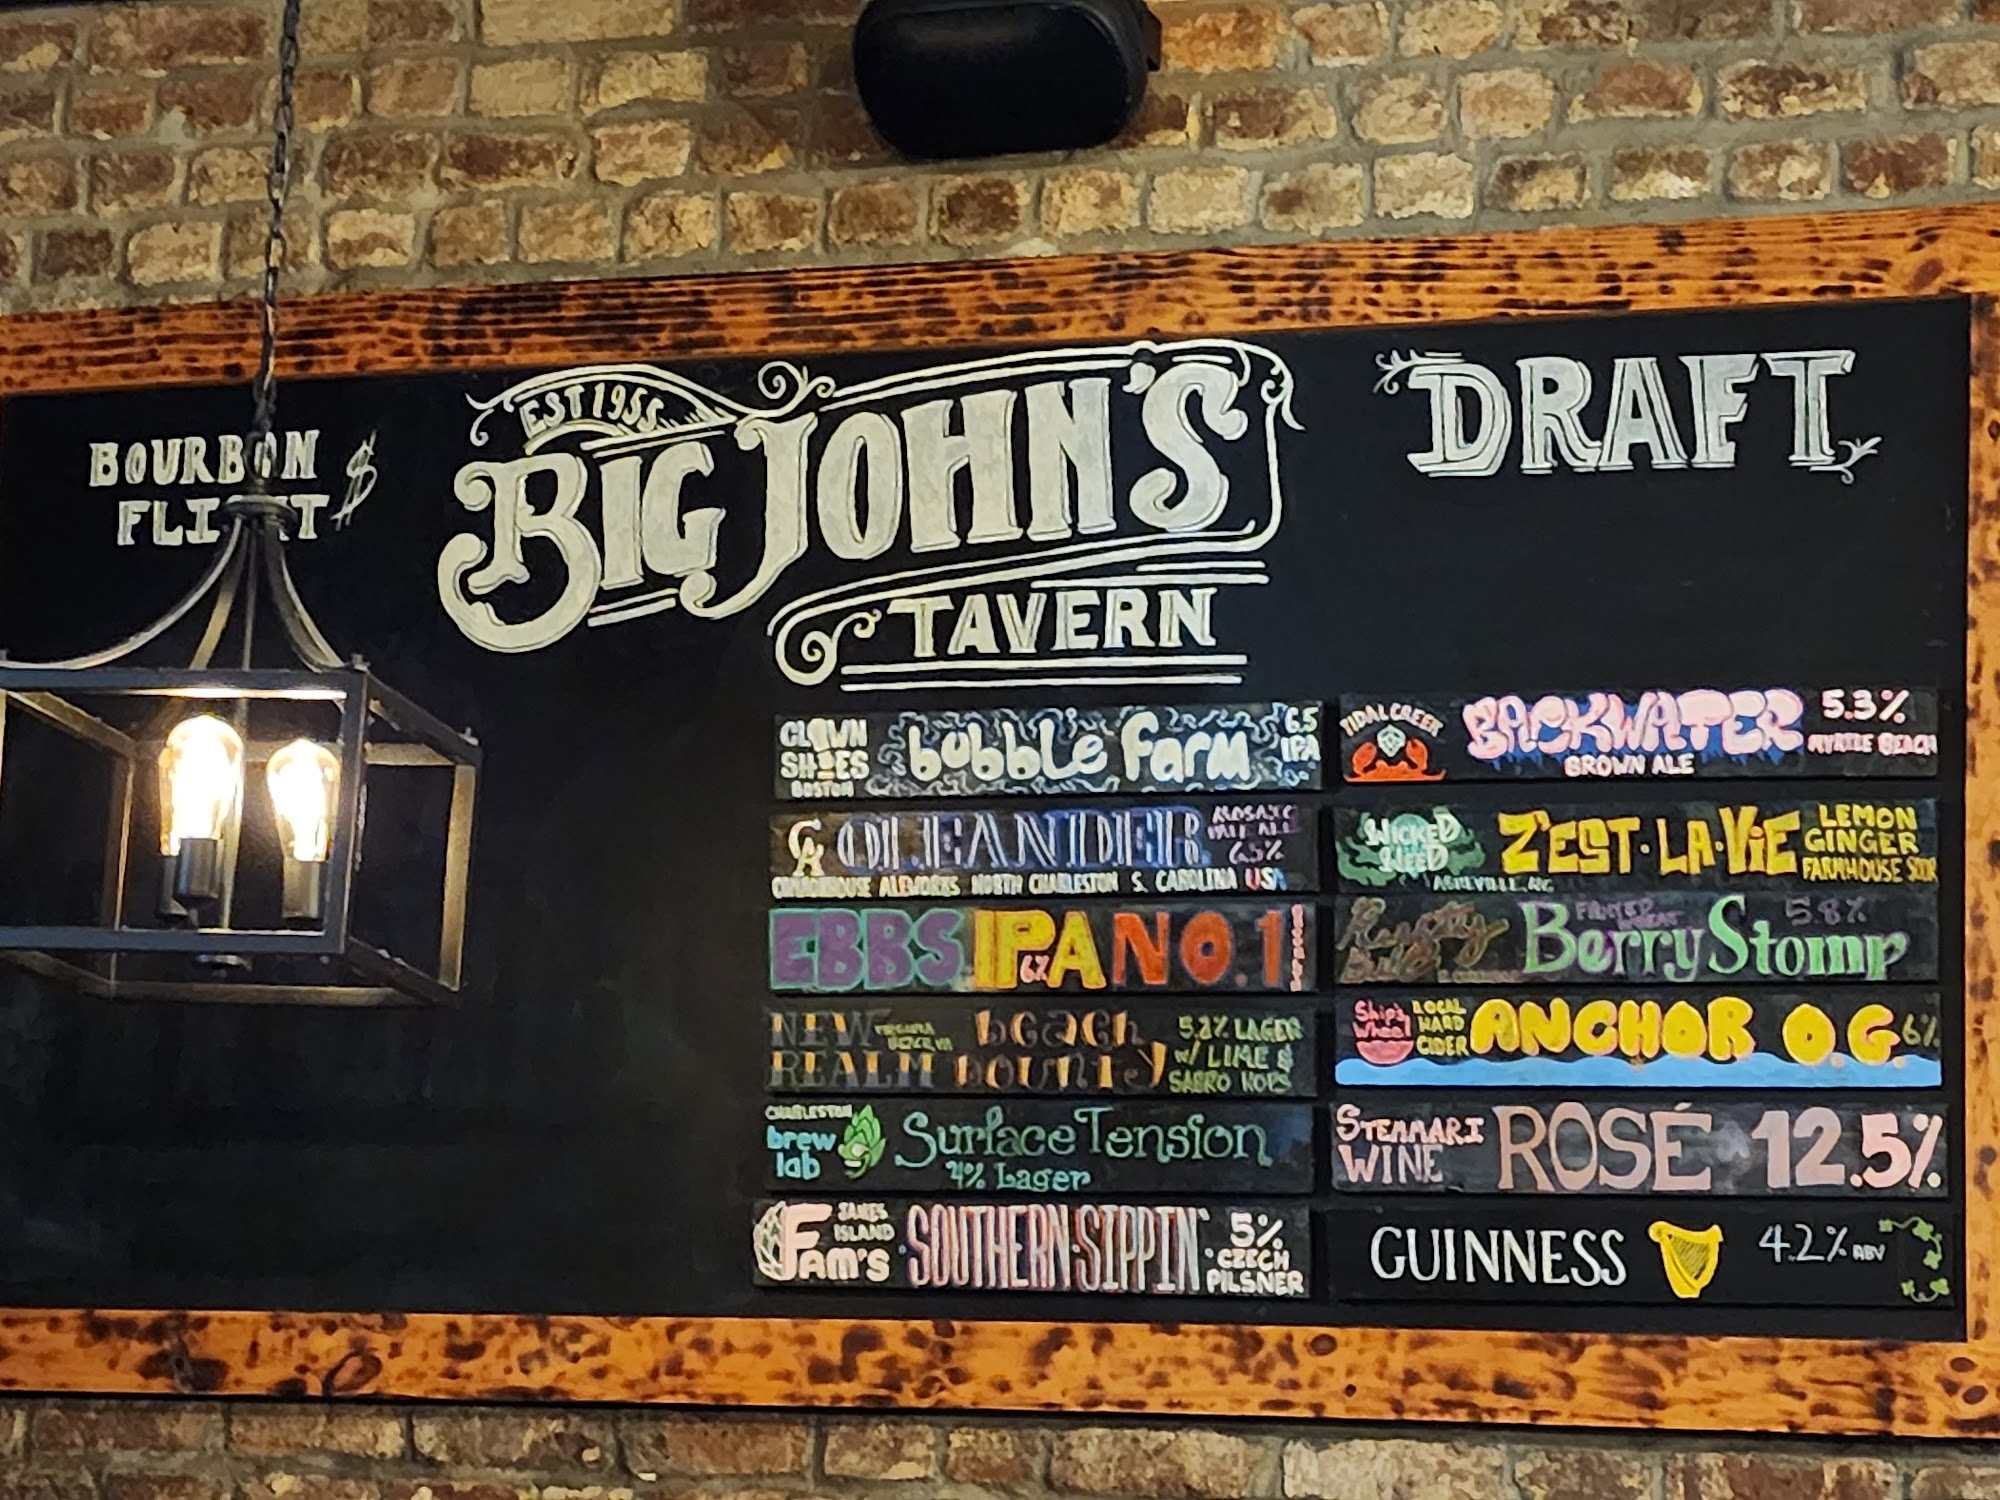 BOURBON
FLIGHT $
EST 1955
BIG JOHN'S
TAVERN
DRAFT
CLOWN SHOES BOSTON
bubble farm
6.5 IPA
CA OLEANDER
MOSAIC PALE ALE 6.5%
CHARLESTON S. CAROLINA USA
EBBS IPA NO. 1
6%
NEW REALM
VIRGINIA BEACH, VA
beach bounty
5.2% LAGER
W/ LIME &
SABRO HOPS
CHARLESTON
brew lab
Surface Tension
4% Lager
FAM'S
JAMES ISLAND
SOUTHERN·SIPPIN'
5%
CZECH PILSNER
TIDAL CREEK
BACKWATER
BROWN ALE
5.3%
MYRTLE BEACH
WICKED WEED
ASHEVILLE, NC
Z'EST·LA·ViE
LEMON
GINGER
FARMHOUSE SOUR
Berry Stomp
5.8%
Ship's Wheel
LOCAL HARD CIDER
ANCHOR O.G.
6%
STEMMARI WINE
ROSÉ 12.5%
GUINNESS
4.2% ABV